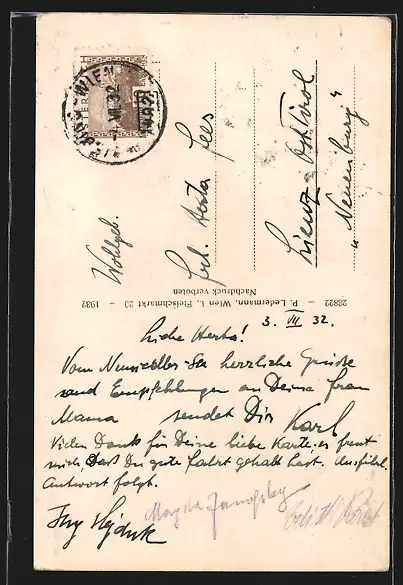 Wohlgeb.
Frl. Herta Lees
Lienz Osttirol
"Neuenburg"
28822 - P. Ledermann, Wien I., Fleischmarkt 20 - 1932
Nachdruck verboten
3. VII 32.
Liebe Herta!
Vom Neusiedler-See herzliche Grüsse
und Empfehlungen an Deine Frau
Mama sendet Dir Karl
Vielen Dank für Deine liebe Karte; es freut
mich, daß Du gute Fahrt gehabt hast. Ausführl.
Antwort folgt.
Magda
Edith